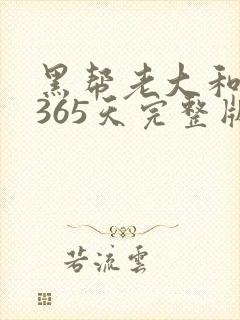 黑帮老大和
365天完整版
若流雲